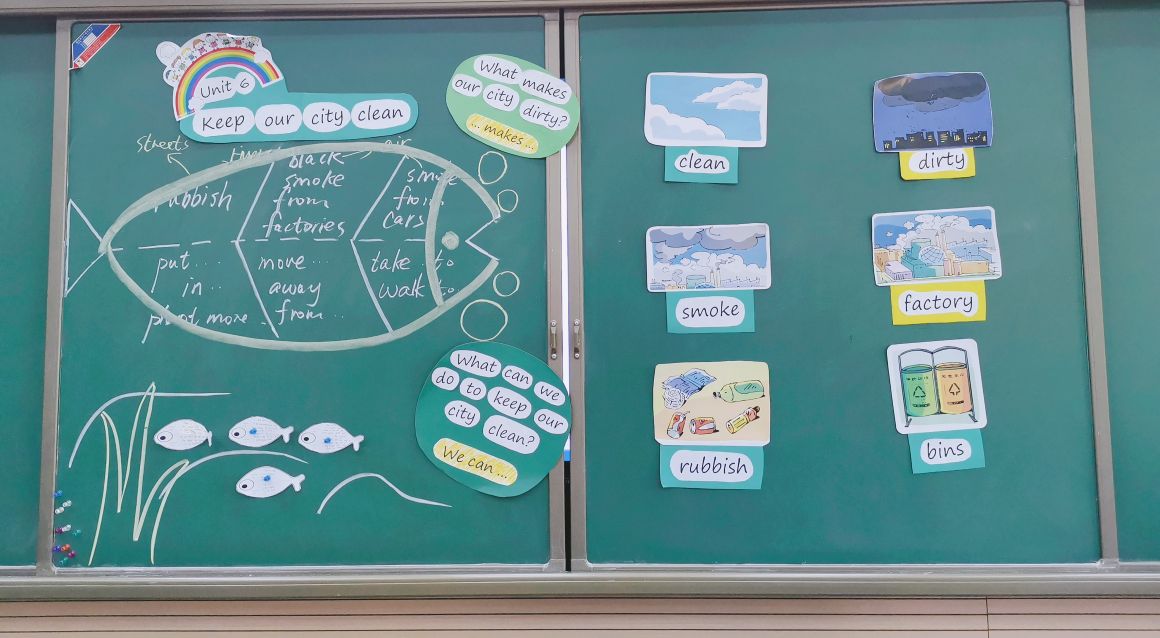 Unit 6
Keep our city clean
What makes
our city dirty?
... makes ...
streets
air
rubbish
black
smoke
from
factories
smoke
from
cars
put...
in...
move...
away
from...
take...to
walk to
more
What can we
do to keep our
city clean?
We can ...
clean
dirty
smoke
factory
rubbish
bins